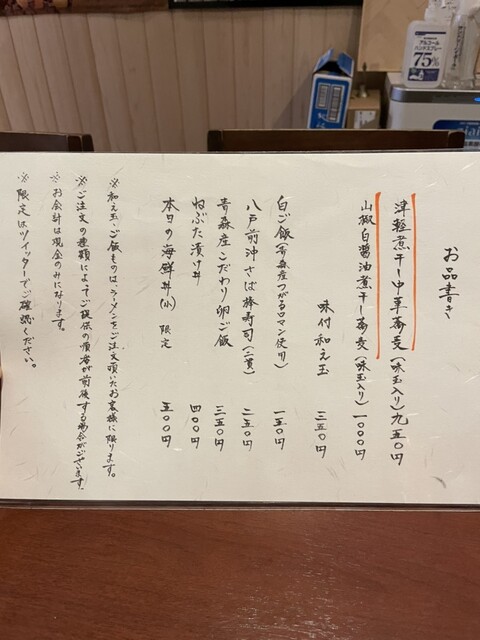 お品書き
津軽煮干し中華蕎麦(味玉入り)九五〇円
山椒白醤油煮干し蕎麦(味玉入り)一〇〇〇円
味付和え玉 三五〇円
白ご飯(青森産つがるロマン使用) 一五〇円
八戸前沖さば棒寿司(二貫) 二五〇円
青森産こだわり卵ご飯 三五〇円
ねぶた漬け丼 四〇〇円
本日の海鮮丼(小) 限定 五〇〇円
※和え玉・ご飯ものは、ラーメンをご注文頂いたお客様に限ります。
※ご注文の種類によってご提供の順番が前後する場合がございます。
※お会計は現金のみになります。
※限定はツイッターでご確認ください。
アルコール
ハンドスプレー
75%